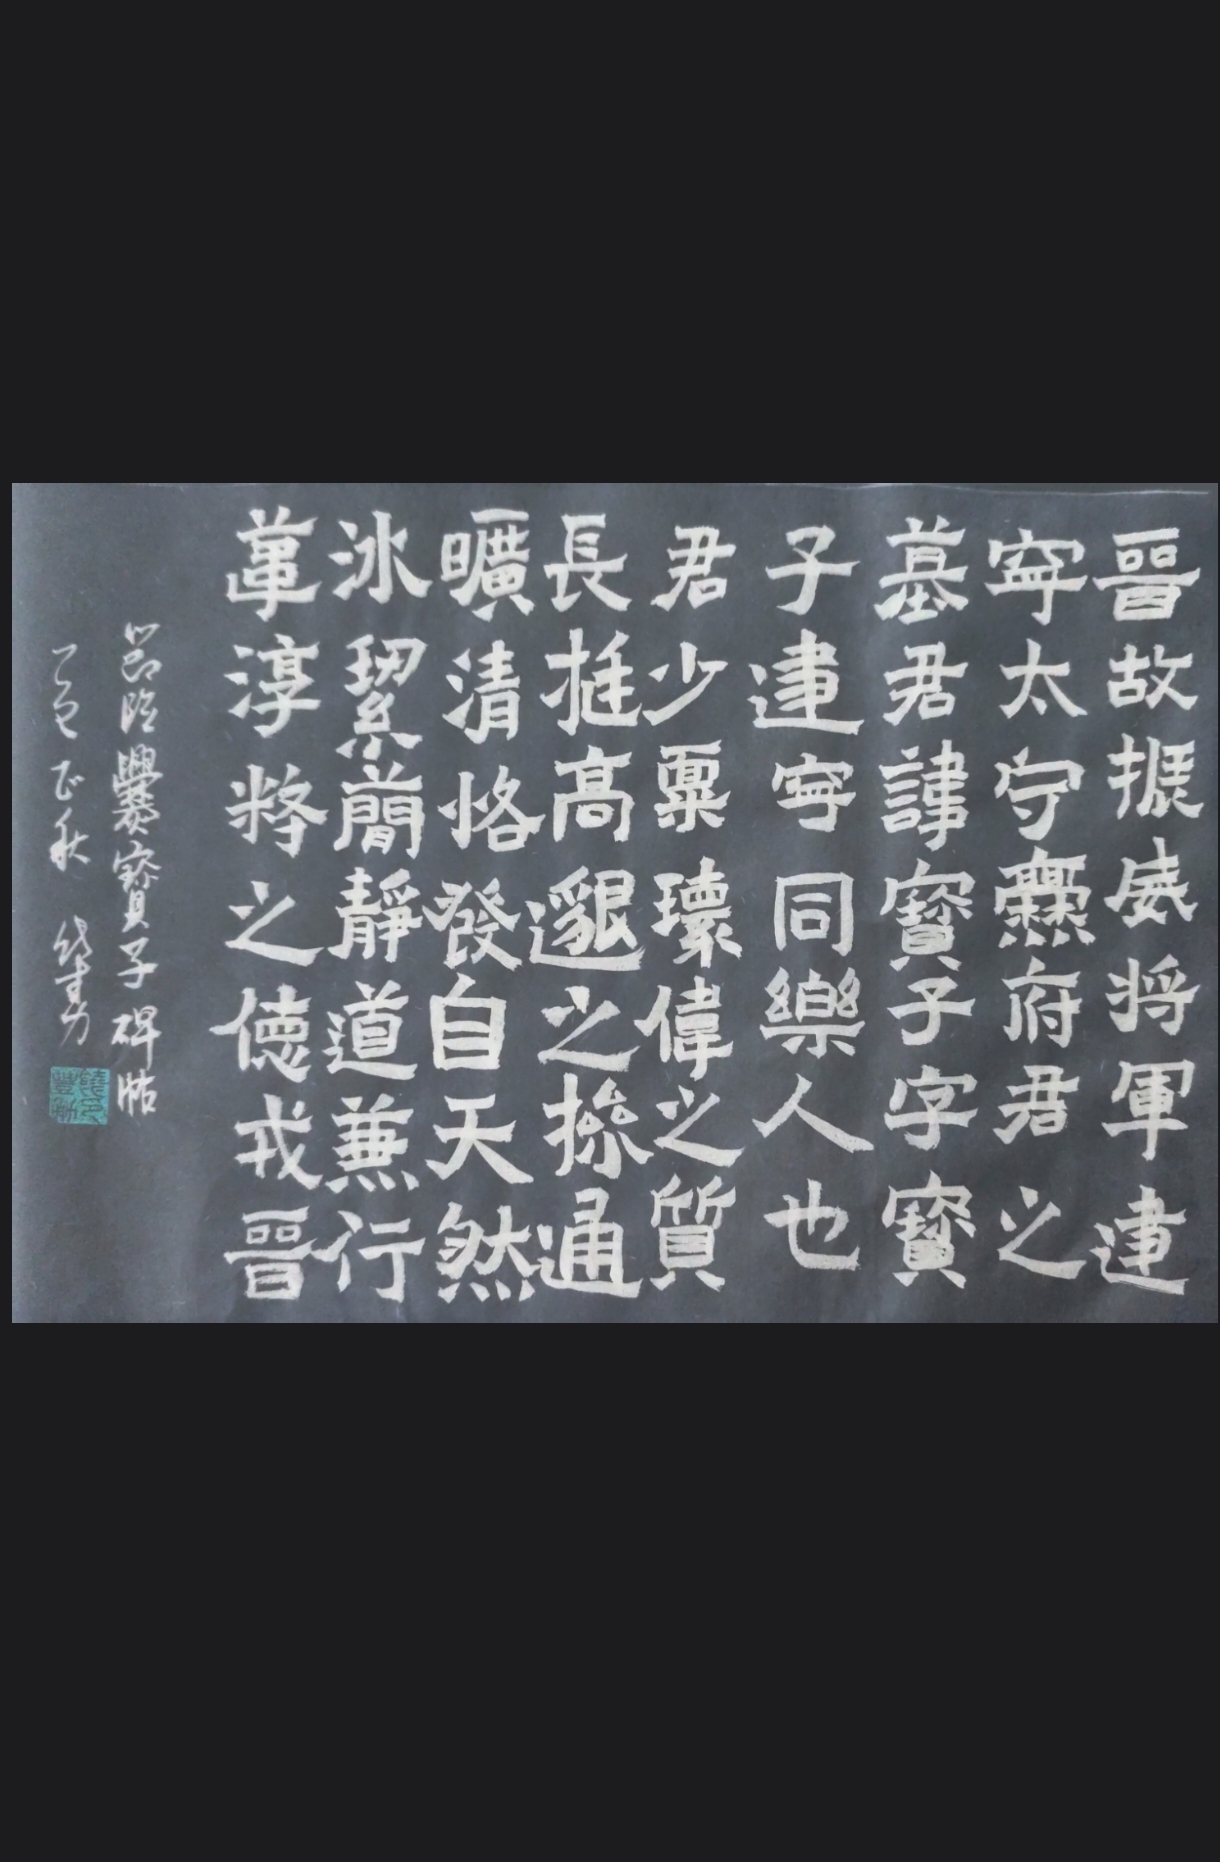 晉故振威将軍建
寧太守爨府君之
墓君諱寶子字寶
子建寧同樂人也
君少稟瓌偉之質
長挺高邈之操通
曠清恪發自天然
冰絜簡靜道兼行
葦淳粹之德戎晉
節臨爨寶子碑帖
乙巳 秋